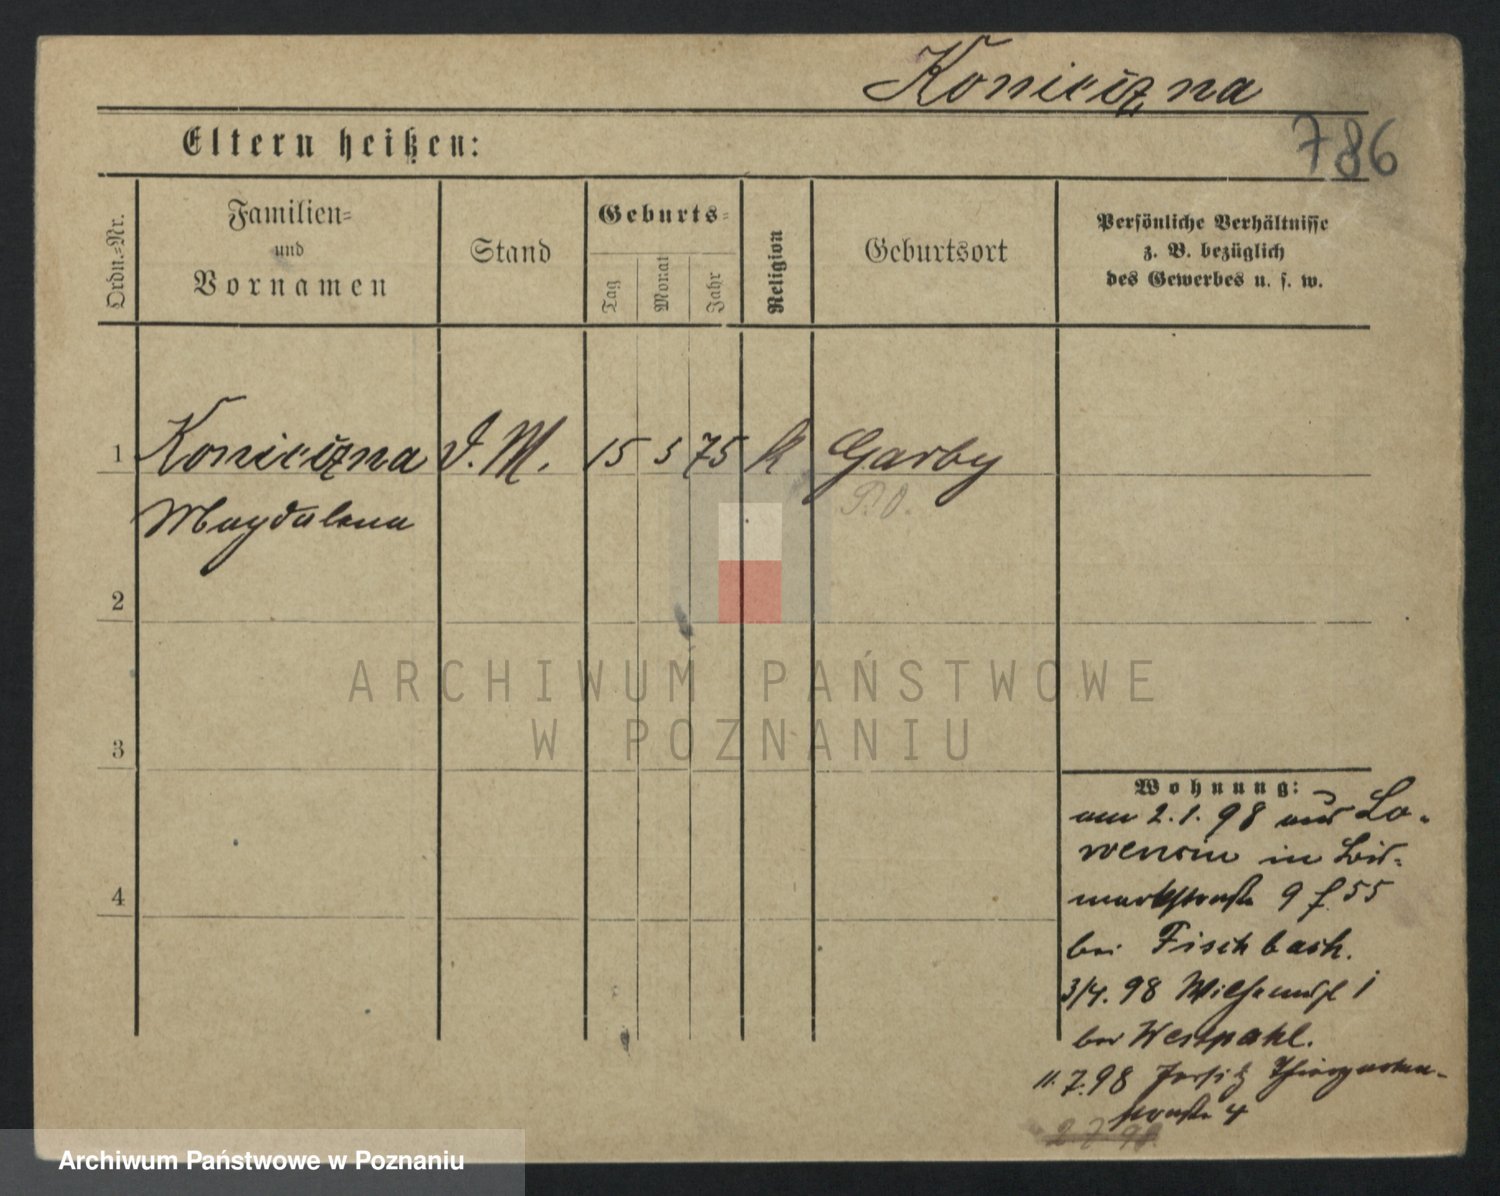 Konieczna
786
Eltern heißen:
Ordn.-Nr.
Familien-
und
Vornamen
Stand
Geburts-
Tag
Monat
Jahr
Religion
Geburtsort
Persönliche Verhältnisse
z. B. bezüglich
des Gewerbes u. s. w.
1 Konieczna D. M. 15 5 75 k Garby
Magdalena P.O.
2
3
4
Wohnung:
am 2.1.98 aus Lo-
wencin in Bis-
markstraße 9 f. 55
bei Fischbach.
3/4. 98 1
bei Westpahl.
11.7.98 Jersitz Thiergarten-
straße 4
2 7 98
ARCHIWUM PAŃSTWOWE
W POZNANIU
Archiwum Państwowe w Poznaniu